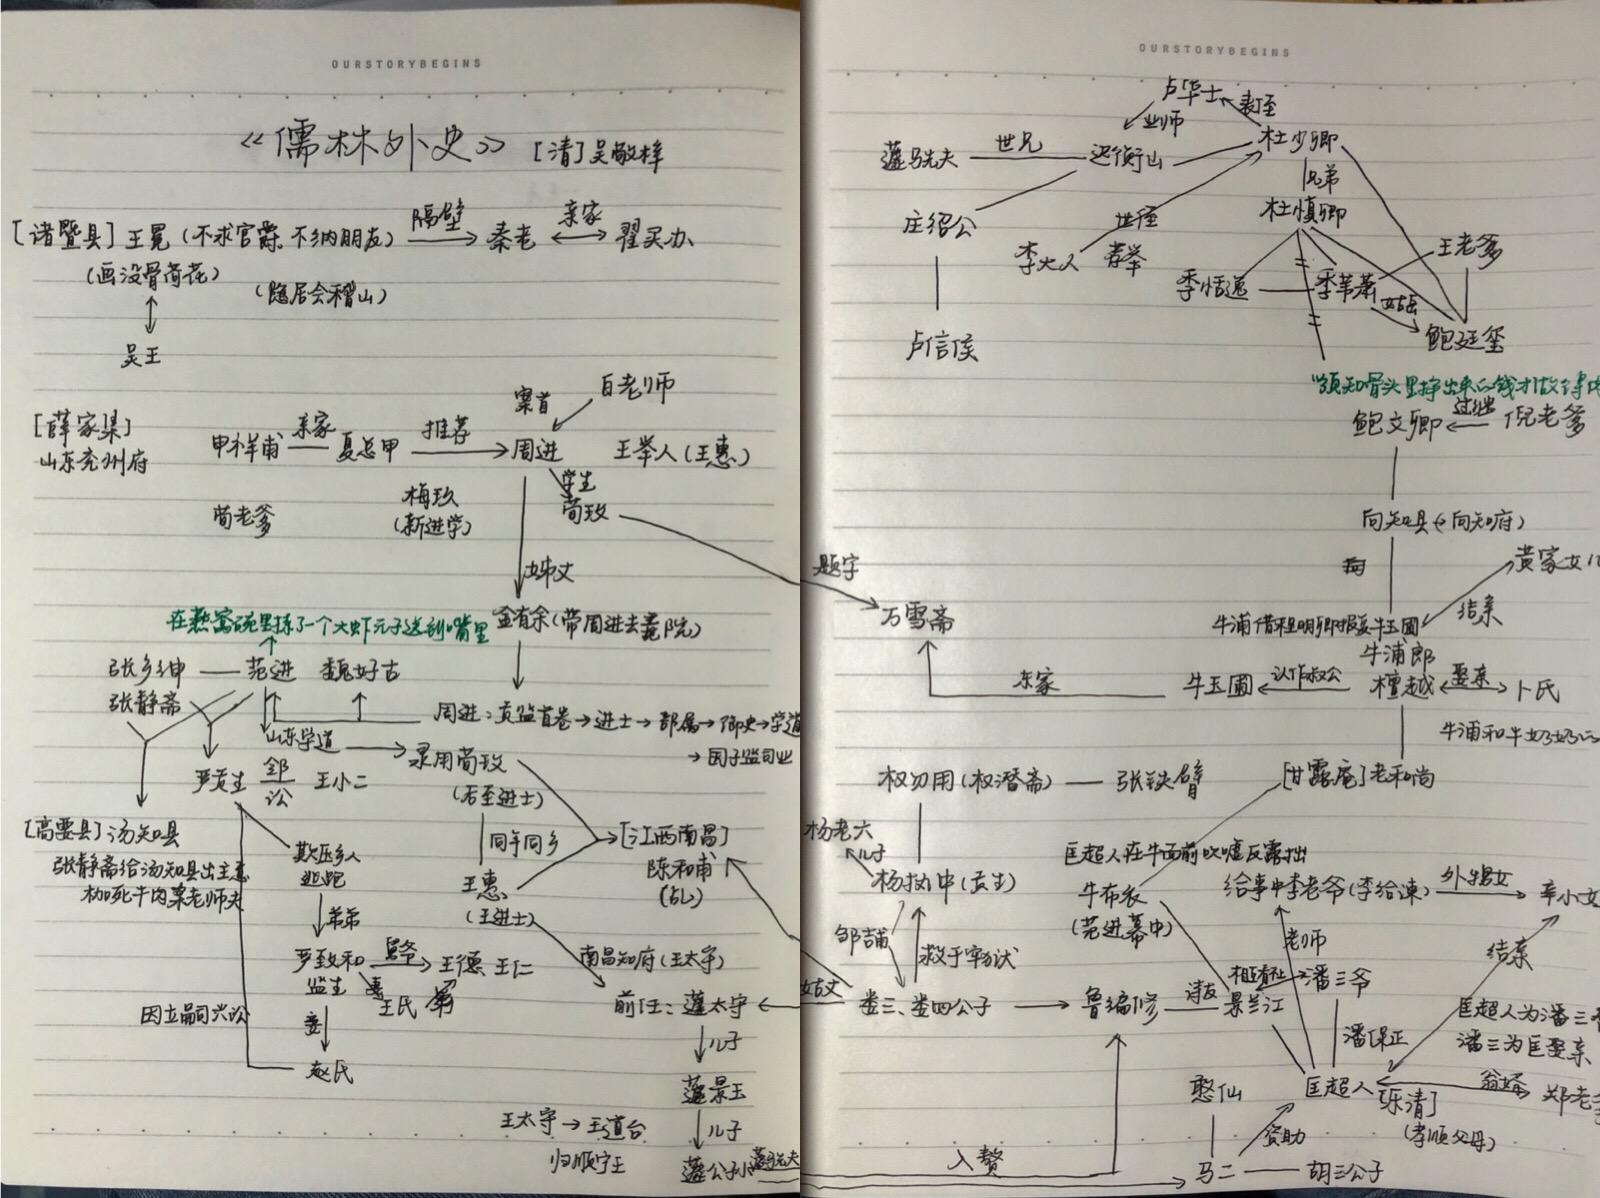 OURSTORYBEGINS
《儒林外史》 [清]吴敬梓
[诸暨县]王冕(不求官爵,不纳朋友) 隔壁 秦老 亲家 翟买办
(画没骨荷花)
(隐居会稽山)
吴王
案首 白老师
[薛家集] 申祥甫 亲家 夏总甲 推荐 周进 王举人(王惠)
山东兖州府
荀老爹 梅玖 学生
(新进学) 荀玫
姊丈
在燕窝碗里拣了一个大虾元子送到嘴里 金有余(带周进去贡院)
张乡绅 范进 魏好古
张静斋
周进:贡监首卷→进士→部属→御史→学道
→国子监司业
山东学道 录用荀玫
(后至进士)
严贡生 邻 王小二
讼
[高要县]汤知县
张静斋给汤知县出主意
枷死牛肉案老师夫
欺压乡人
逃跑
弟弟
同年同乡 [江西南昌]
陈和甫
(乩)
王惠
(王进士)
严致和 舅爷 王德 王仁
监生 妻 王氏
南昌知府(王太守)
前任:蘧太守
因立嗣兴讼 妾
赵氏
儿子
蘧景玉
王太守→王道台 儿子
归顺宁王 蘧公孙 蘧駪夫
OURSTORYBEGINS
卢华士 表侄
业师 杜少卿
蘧駪夫 世兄 迟衡山
兄弟
庄绍公 世侄 杜慎卿
李大人 荐举 王老爹
季恬逸 季苇萧 姑岳
卢信侯 鲍廷玺
"须知骨头里挣出来的钱才做得
鲍文卿 过继 倪老爹
向知县(向知府)
题字 黄家女儿
万雪斋 结亲
牛浦借程明卿报复牛玉圃
牛浦郎
东家 牛玉圃 认作叔公 檀越 娶亲 卜氏
牛浦和牛奶奶
权勿用(权潜斋) 张铁臂 [甘露庵]老和尚
杨老六
儿子 匡超人在牛面前吹嘘反露拙
杨执中(贡生) 牛布衣 给事中李老爷(李给谏) 外甥女 辛小女
(范进幕中)
邹吉甫 救于牢狱 老师 结亲
姑丈 娄三、娄四公子 鲁编修 诗友 景兰江 潘三爷
匡超人为潘三
潘保正 潘三为匡娶亲
憨仙 匡超人 翁婿 郑老爹
[乐清]
资助 (孝顺父母)
入赘 马二 胡三公子